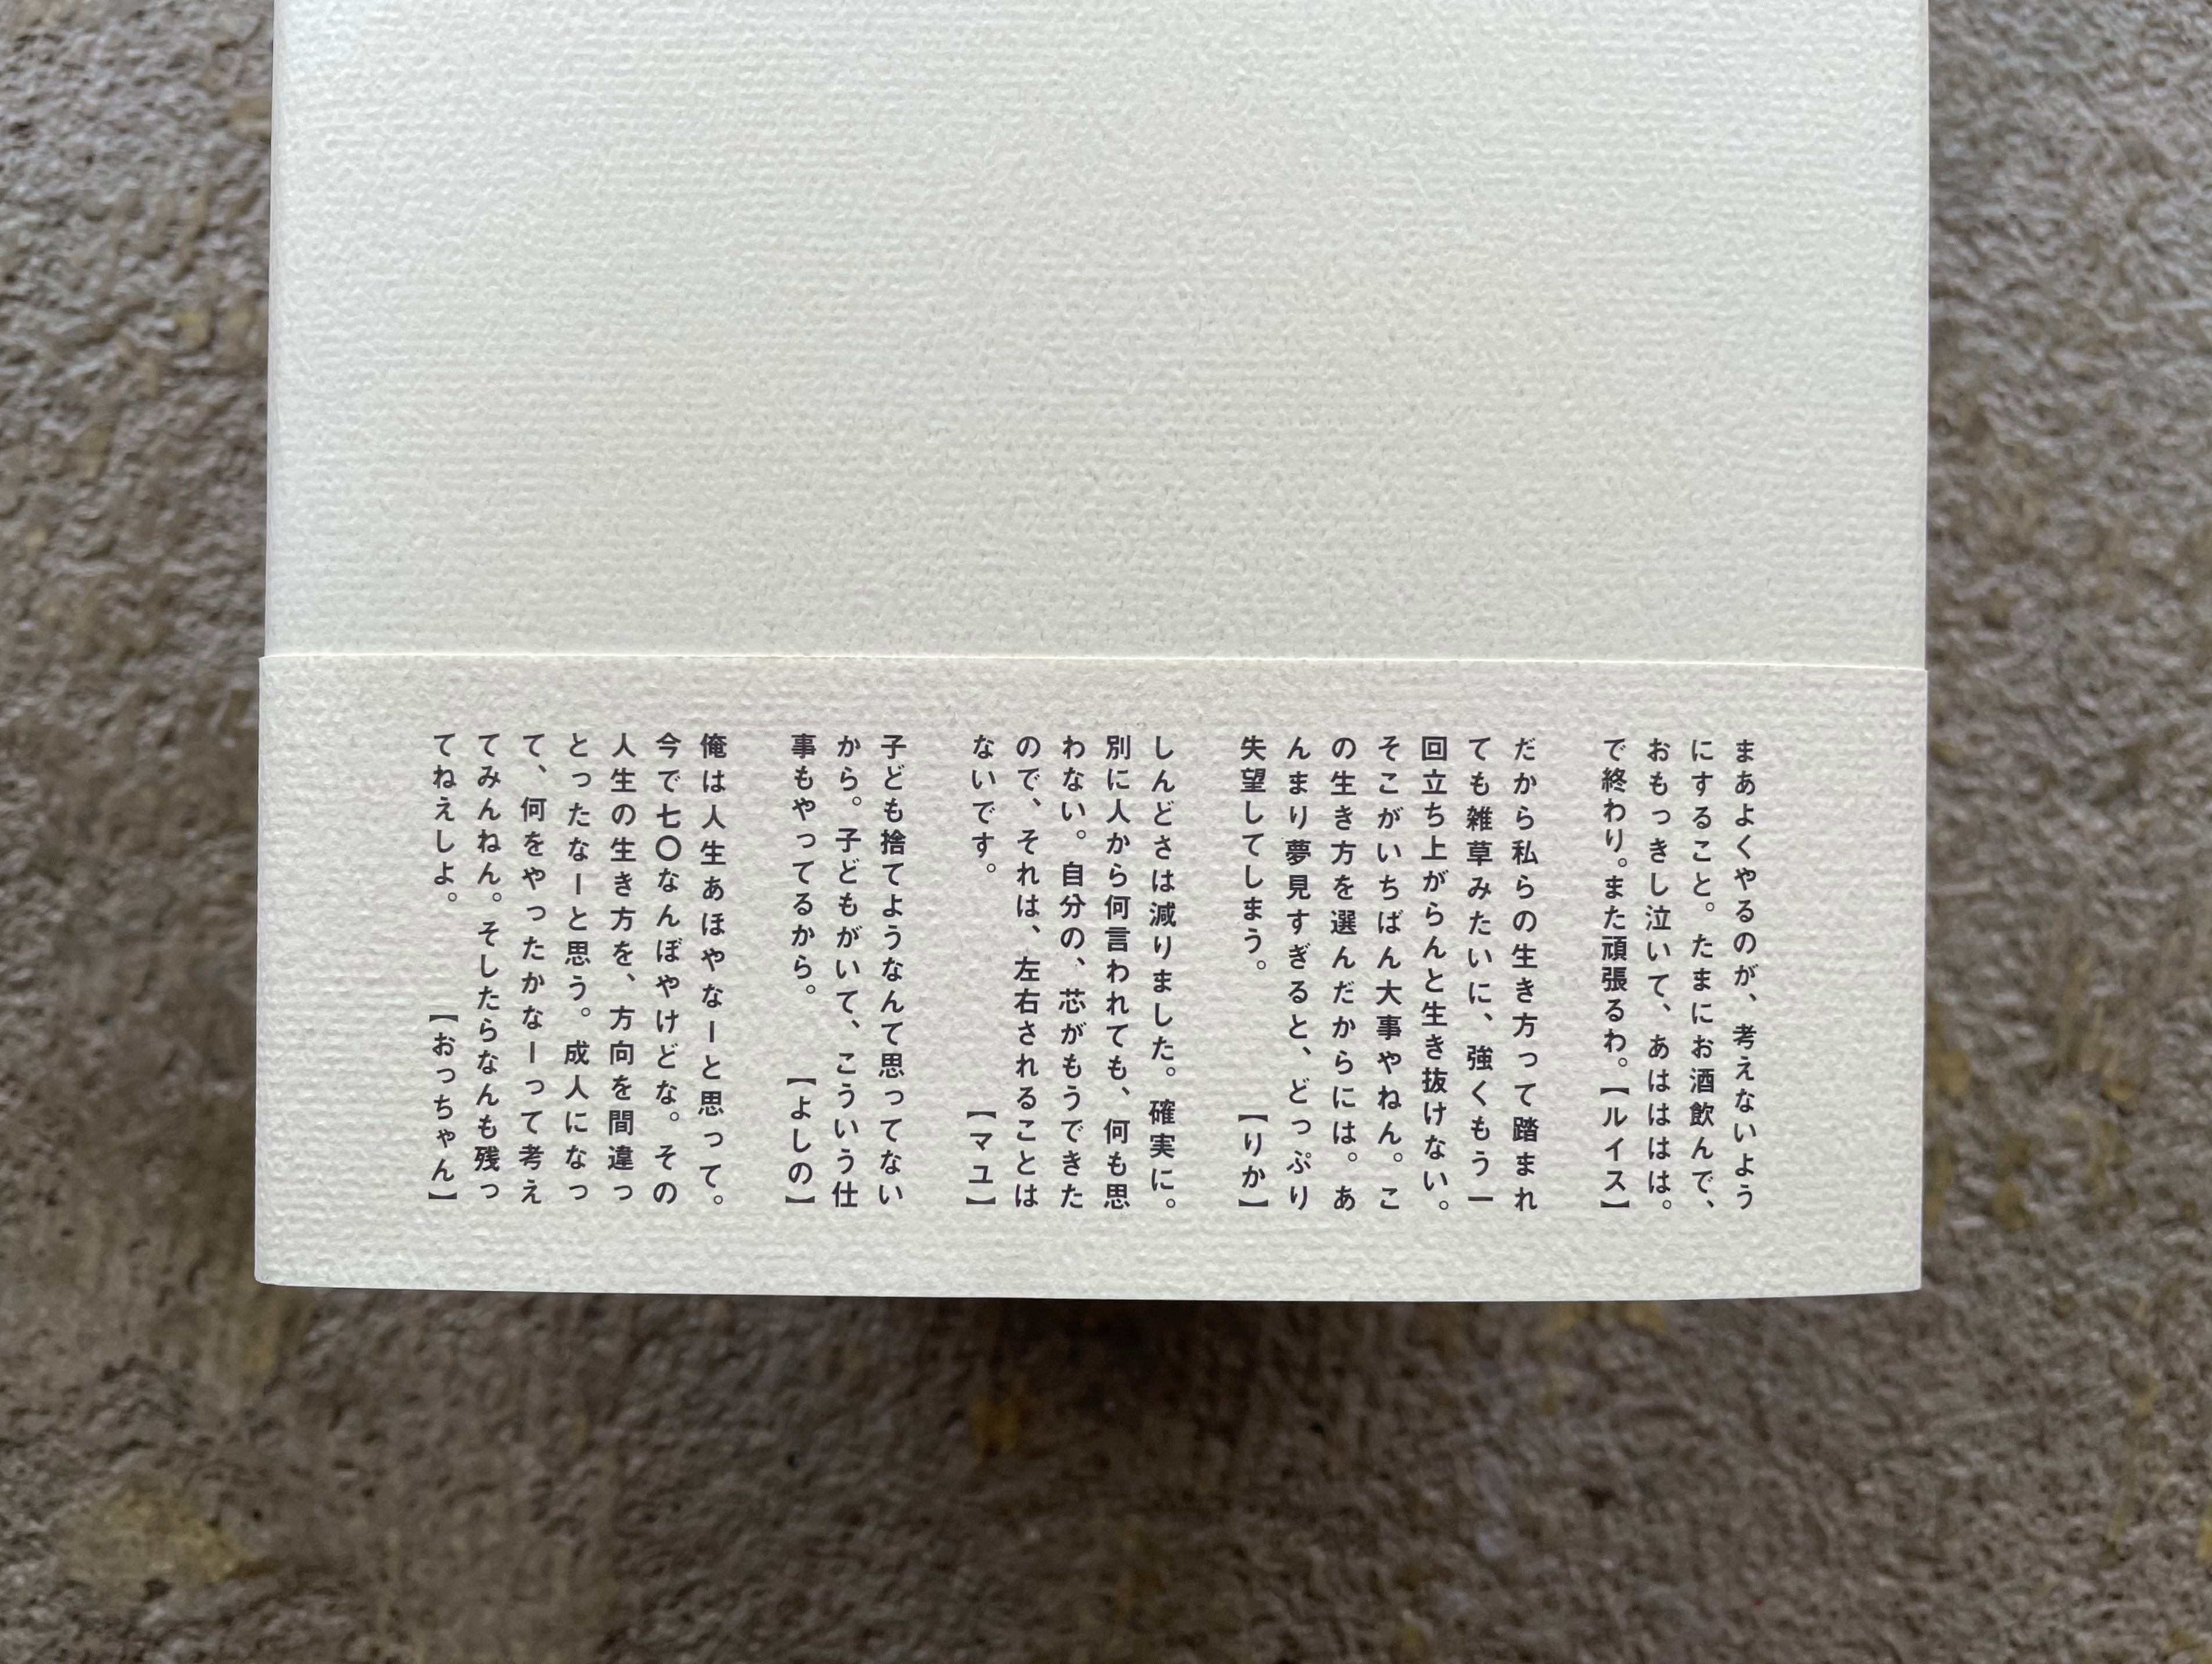 まあよくやるのが、考えないよう
にすること。たまにお酒飲んで、
おもっきし泣いて、あはははは。
で終わり。また頑張るわ。【ルイス】
だから私らの生き方って踏まれ
ても雑草みたいに、強くもう一
回立ち上がらんと生き抜けない。
そこがいちばん大事やねん。こ
の生き方を選んだからには。あ
んまり夢見すぎると、どっぷり
失望してしまう。【りか】
しんどさは減りました。確実に。
別に人から何言われても、何も思
わない。自分の、芯がもうできた
ので、それは、左右されることは
ないです。【マユ】
子ども捨てようなんて思ってない
から。子どもがいて、こういう仕
事もやってるから。【よしの】
俺は人生あほやなーと思って。
今で七〇なんぼやけどな。その
人生の生き方を、方向を間違っ
とったなーと思う。成人になっ
て、何をやったかなーって考え
てみんねん。そしたらなんも残っ
てねえしよ。【おっちゃん】